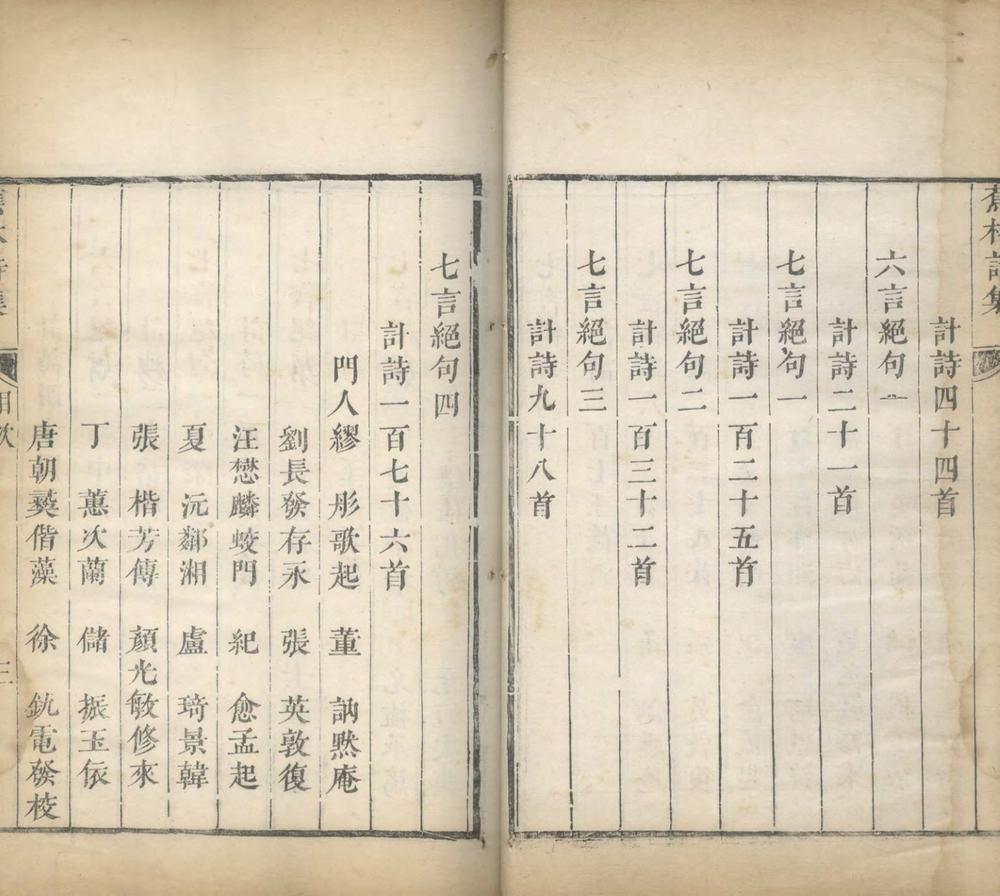 蕉林詩集
計詩四十四首
六言絕句
計詩二十一首
七言絕句一
計詩一百二十五首
七言絕句二
計詩一百三十二首
七言絕句三
計詩九十八首
七言絕句四
計詩一百七十六首
門人繆 彤歌起 董 訥黙庵
劉長發存永 張 英敦復
汪懋麟蛟門 紀 愈孟起
夏 沅鄰湘 盧 琦景韓
張 楷芳傳 顏光敏修來
丁 蕙次蘭 儲 振玉依
唐朝彝偕藻 徐 釚電發校
目次
三